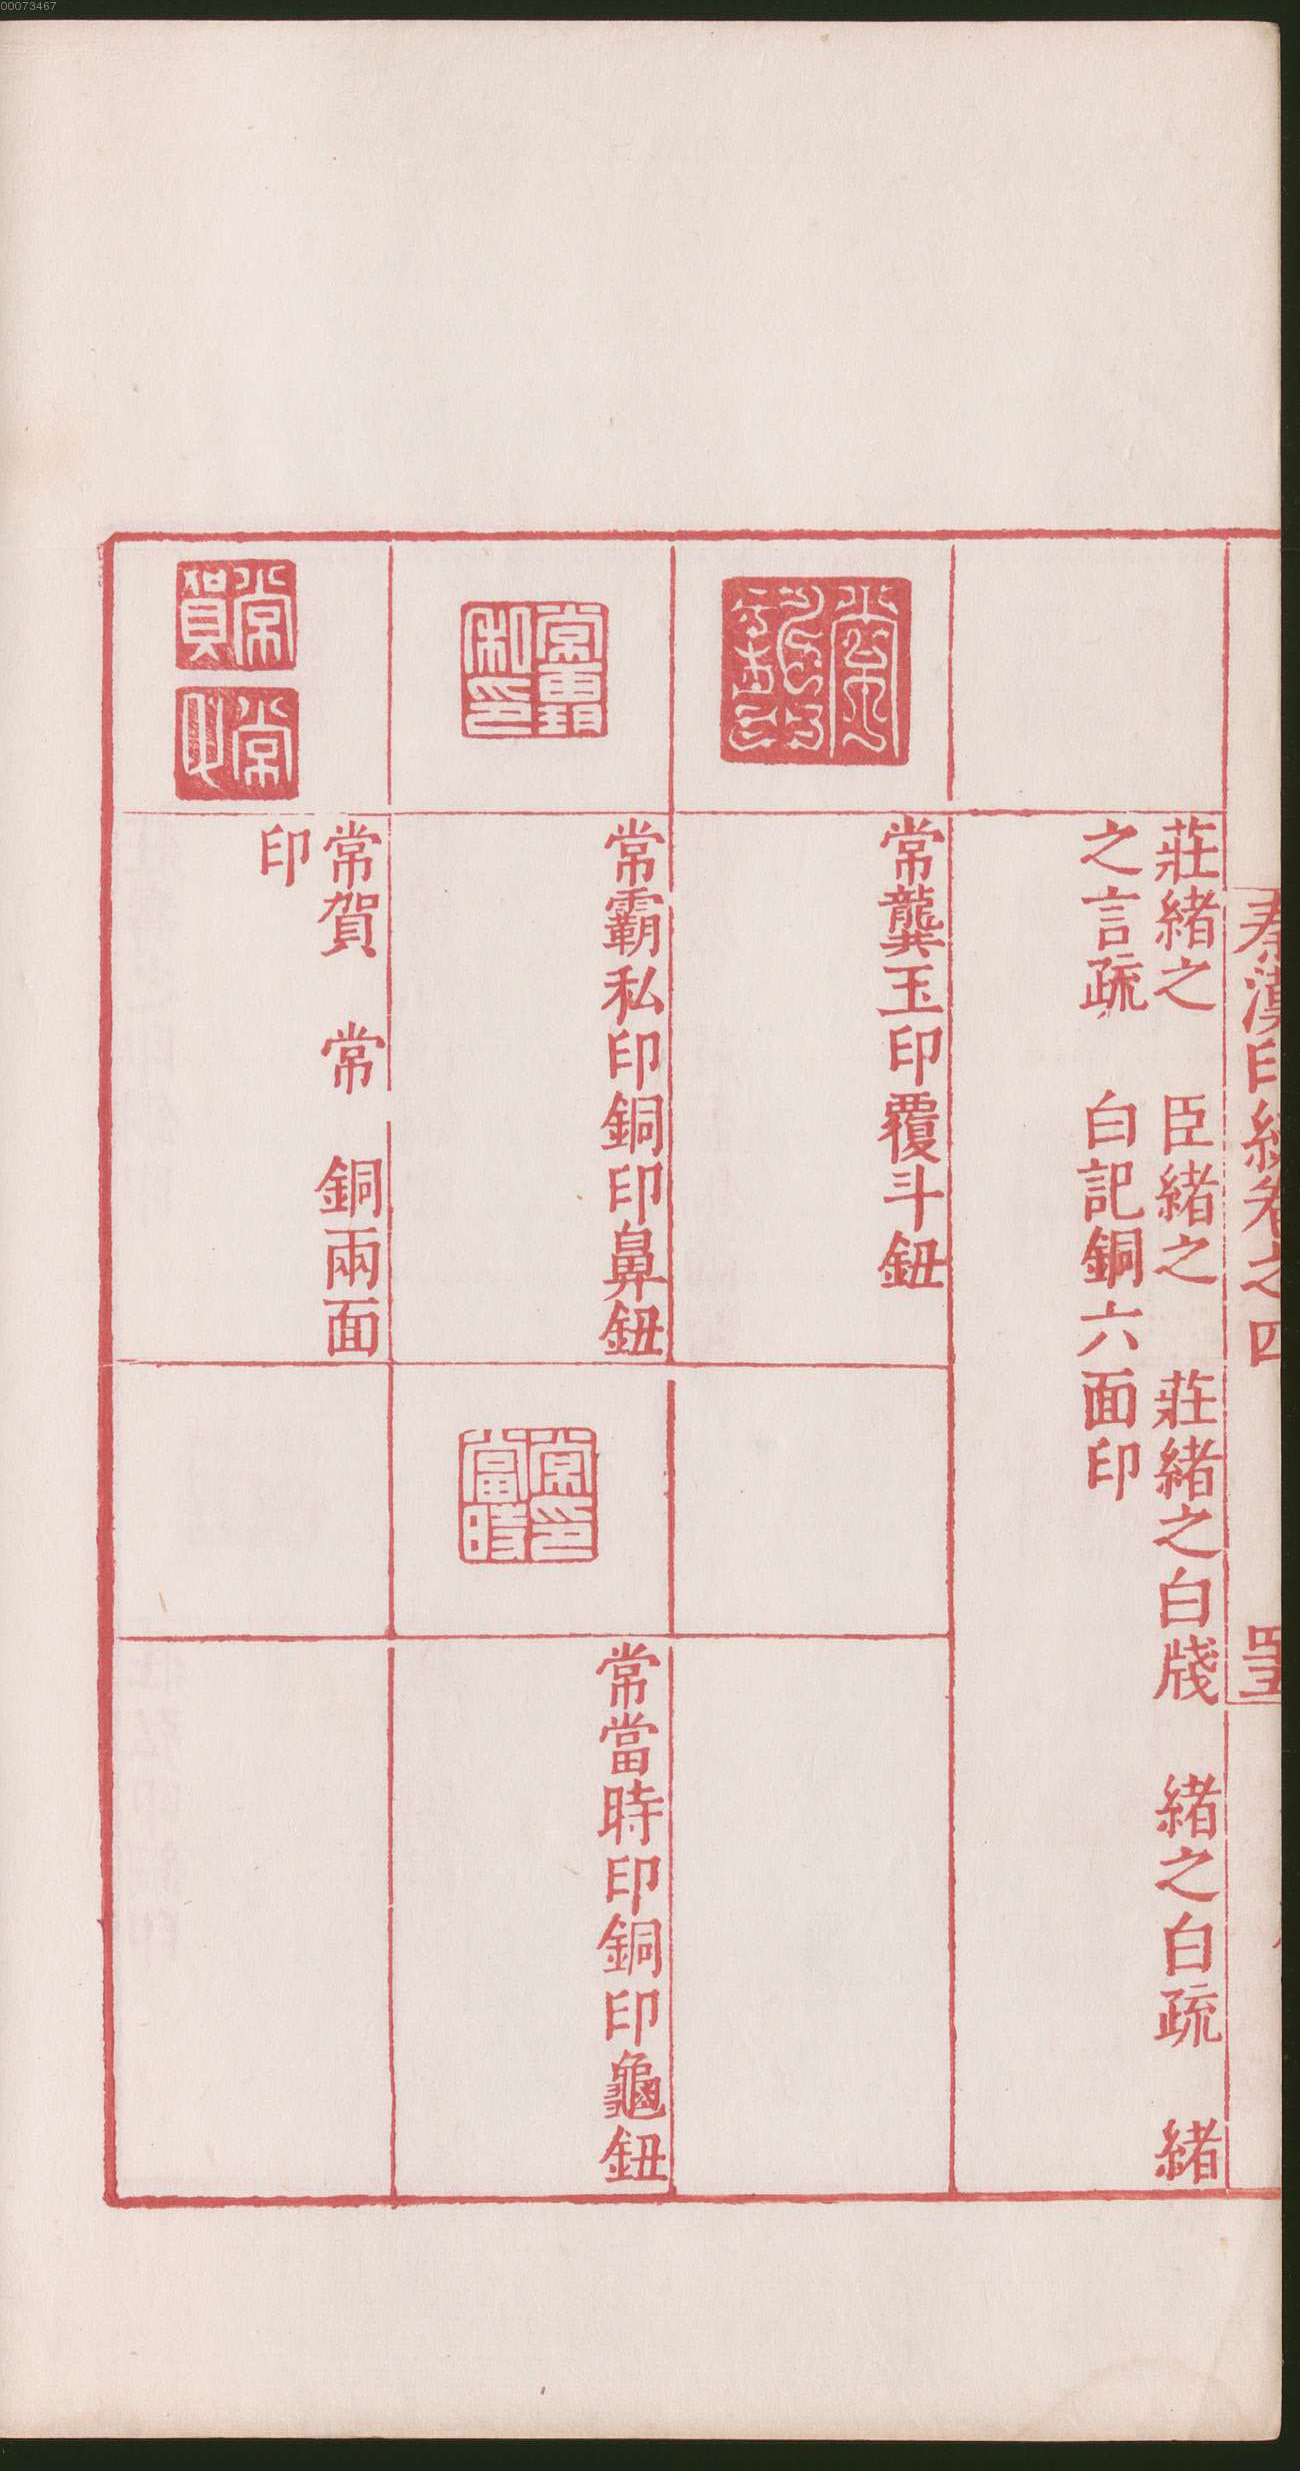 00073467
秦漢印統卷之四
莊緒之　臣緒之　莊緒之白牋　緒之白疏　緒
之言疏　白記銅六面印
常龔玉印覆斗鈕
常霸私印銅印鼻鈕
常當時印銅印龜鈕
常賀　常　銅兩面
印